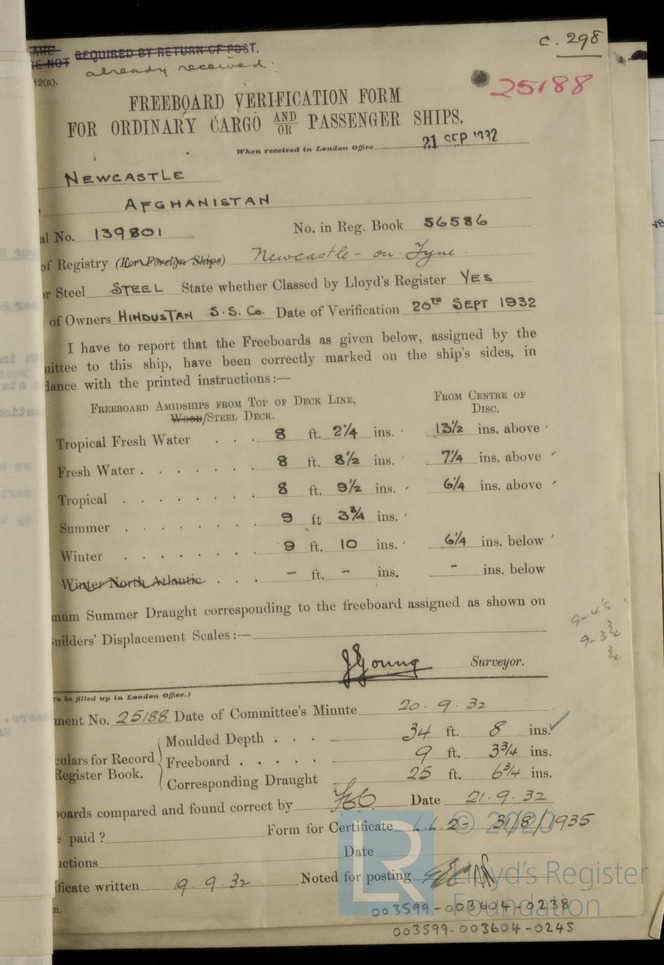 C. 298
REQUIRED BY RETURN OF POST.
BE NOT
already received.
12(a).
25188
FREEBOARD VERIFICATION FORM
FOR ORDINARY CARGO AND/OR PASSENGER SHIPS.
When received in London Office 21 SEP 1932
NEWCASTLE
AFGHANISTAN
al No. 139801 No. in Reg. Book 56586
of Registry (For Foreign Ships) Newcastle-on Tyne.
or Steel STEEL State whether Classed by Lloyd's Register YES
of Owners HINDUSTAN S.S. Co. Date of Verification 20TH SEPT 1932
I have to report that the Freeboards as given below, assigned by the
mittee to this ship, have been correctly marked on the ship's sides, in
dance with the printed instructions:—
FREEBOARD AMIDSHIPS FROM TOP OF DECK LINE, FROM CENTRE OF
WOOD/STEEL DECK. DISC.
Tropical Fresh Water . . . 8 ft. 2¼ ins. 13½ ins. above
Fresh Water . . . . . . 8 ft. 8½ ins. 7¼ ins. above
Tropical . . . . . . . 8 ft. 9½ ins. 6¼ ins. above
Summer . . . . . . . 9 ft 3¾ ins.
Winter . . . . . . . 9 ft. 10 ins. 6¼ ins. below
Winter North Atlantic . . . - ft. - ins. - ins. below
mum Summer Draught corresponding to the freeboard assigned as shown on
uilders' Displacement Scales :—
9-3¾
¾
J Young Surveyor.
To be filled up in London Office.)
ment No. 25188 Date of Committee's Minute 20.9.32
culars for Record Moulded Depth . . . 34 ft. 8 ins.
Register Book. Freeboard . . . . . 9 ft. 3¾ ins.
Corresponding Draught 25 ft. 6¾ ins.
boards compared and found correct by Date 21.9.32
e paid ? Form for Certificate L.L.2- 31/8/1935
Date
uctions
ificate written 19.9.32 Noted for posting
LR © 2020
Lloyd's Register
Foundation
003599-003604-0238
003599-003604-0245